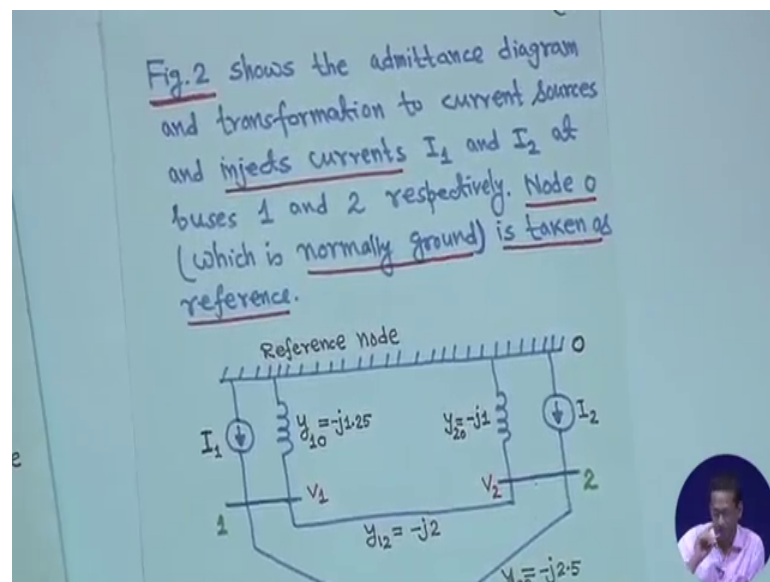 Fig. 2 shows the admittance diagram
and transformation to current sources
and injects currents I₁ and I₂ at
buses 1 and 2 respectively. Node 0
(which is normally ground) is taken as
reference.
Reference node
0
I₁
y₁₀ = -j1.25
y₂₀ = -j1
I₂
e
V₁
V₂
2
1
y₁₂ = -j2
= -j2.5